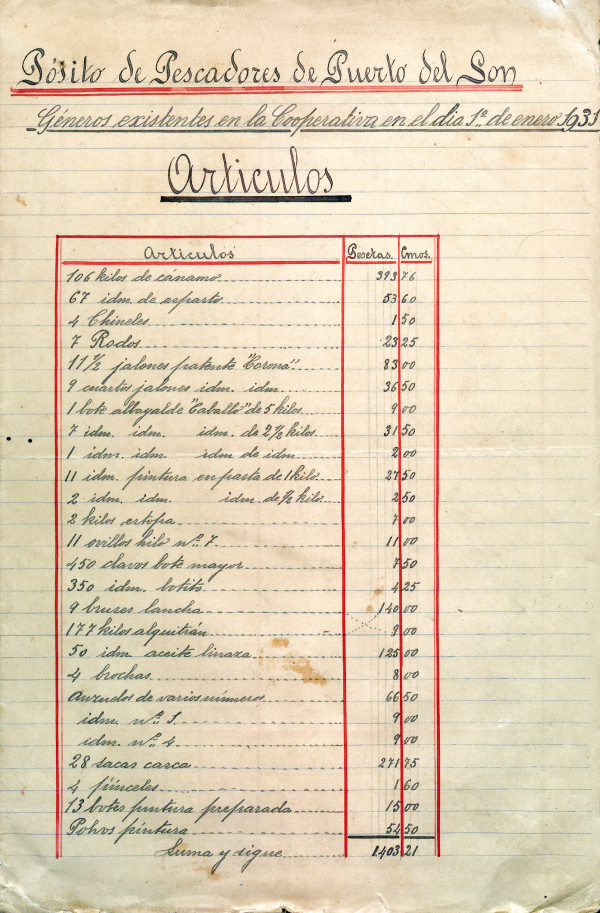 Pósito de Pescadores de Puerto del Son
Géneros existentes en la Cooperativa en el dia 1º de enero 1931
Articulos
Articulos Pesetas. Cmos.
106 kilos de cánamo 393 76
67 idm. de esparto 53 60
4 Chineles 1 50
7 Rodos 23 25
11 1/2 jalones patente "Corona" 83 00
9 cuartos jalones idm. idm. 36 50
1 bote albayalde "Caballo" de 5 kilos 9 00
7 idm. idm. idm. de 2 1/2 kilos 31 50
1 idm. idm. idm de idm. 2 00
11 idm. pintura en pasta de 1 kilo 27 50
2 idm. idm. idm. de 1/2 kilo 2 50
2 kilos estopa 7 00
11 ovillos hilo nº 7 11 00
450 clavos bote mayor 7 50
350 idm. botito 4 25
9 bruses lancha 140 00
177 kilos alquitrán 9 00
50 idm aceite linaza 125 00
4 brochas 8 00
Anzuelos de varios números 66 50
idm. nº 1. 9 00
idm. nº 4 9 00
28 sacas casca 271 75
4 pinceles 1 60
13 botes pintura preparada 15 00
Polvos pintura 54 50
Suma y sigue 1.403 21